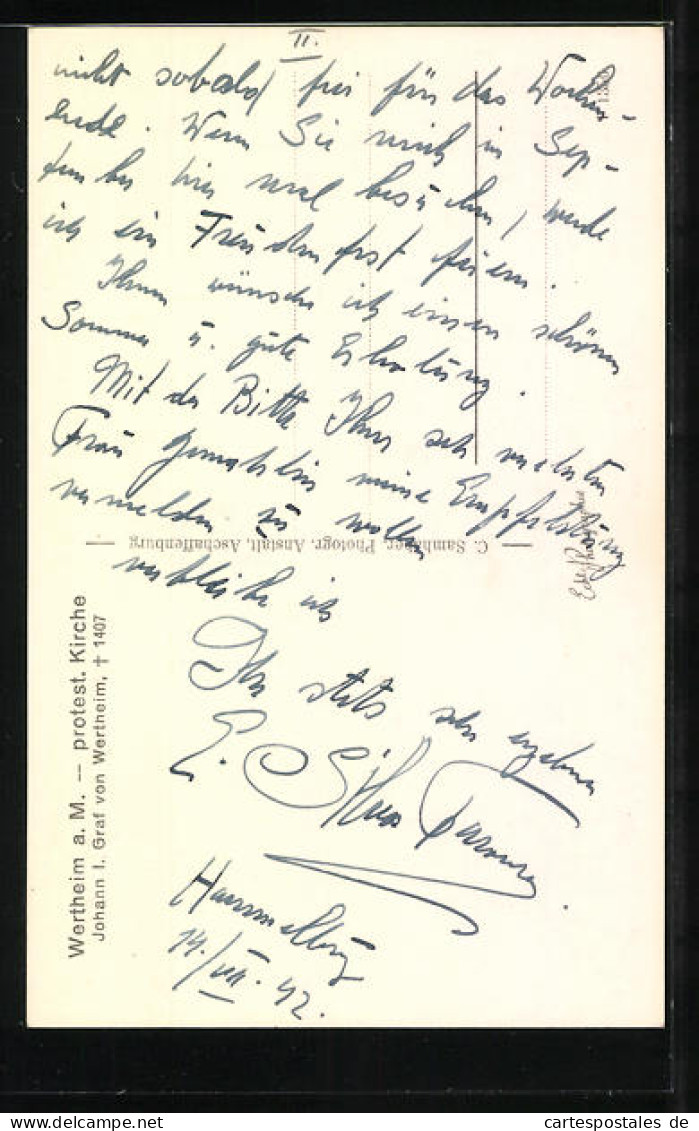 II.
nicht sobald frei für das Wochen-
ende. Wenn Sie mich im Sep-
tember hier mal besuchen, werde
ich ein Freudenfest feiern.
Ihnen wünsche ich einen schönen
Sommer u. gute Erholung.
Mit der Bitte Ihrer sehr verehrten
Frau Gemahlin meine Empfehlung
vermelden zu wollen
verbleibe ich
Ihr stets sehr ergebener
E. Silva
Hammelburg
19./VII. 42.
Wertheim a. M. — protest. Kirche
Johann I. Graf von Wertheim, † 1407
— C. Samhaber, Photogr. Anstalt, Aschaffenburg —
www.oldthing.de
cartespostales de